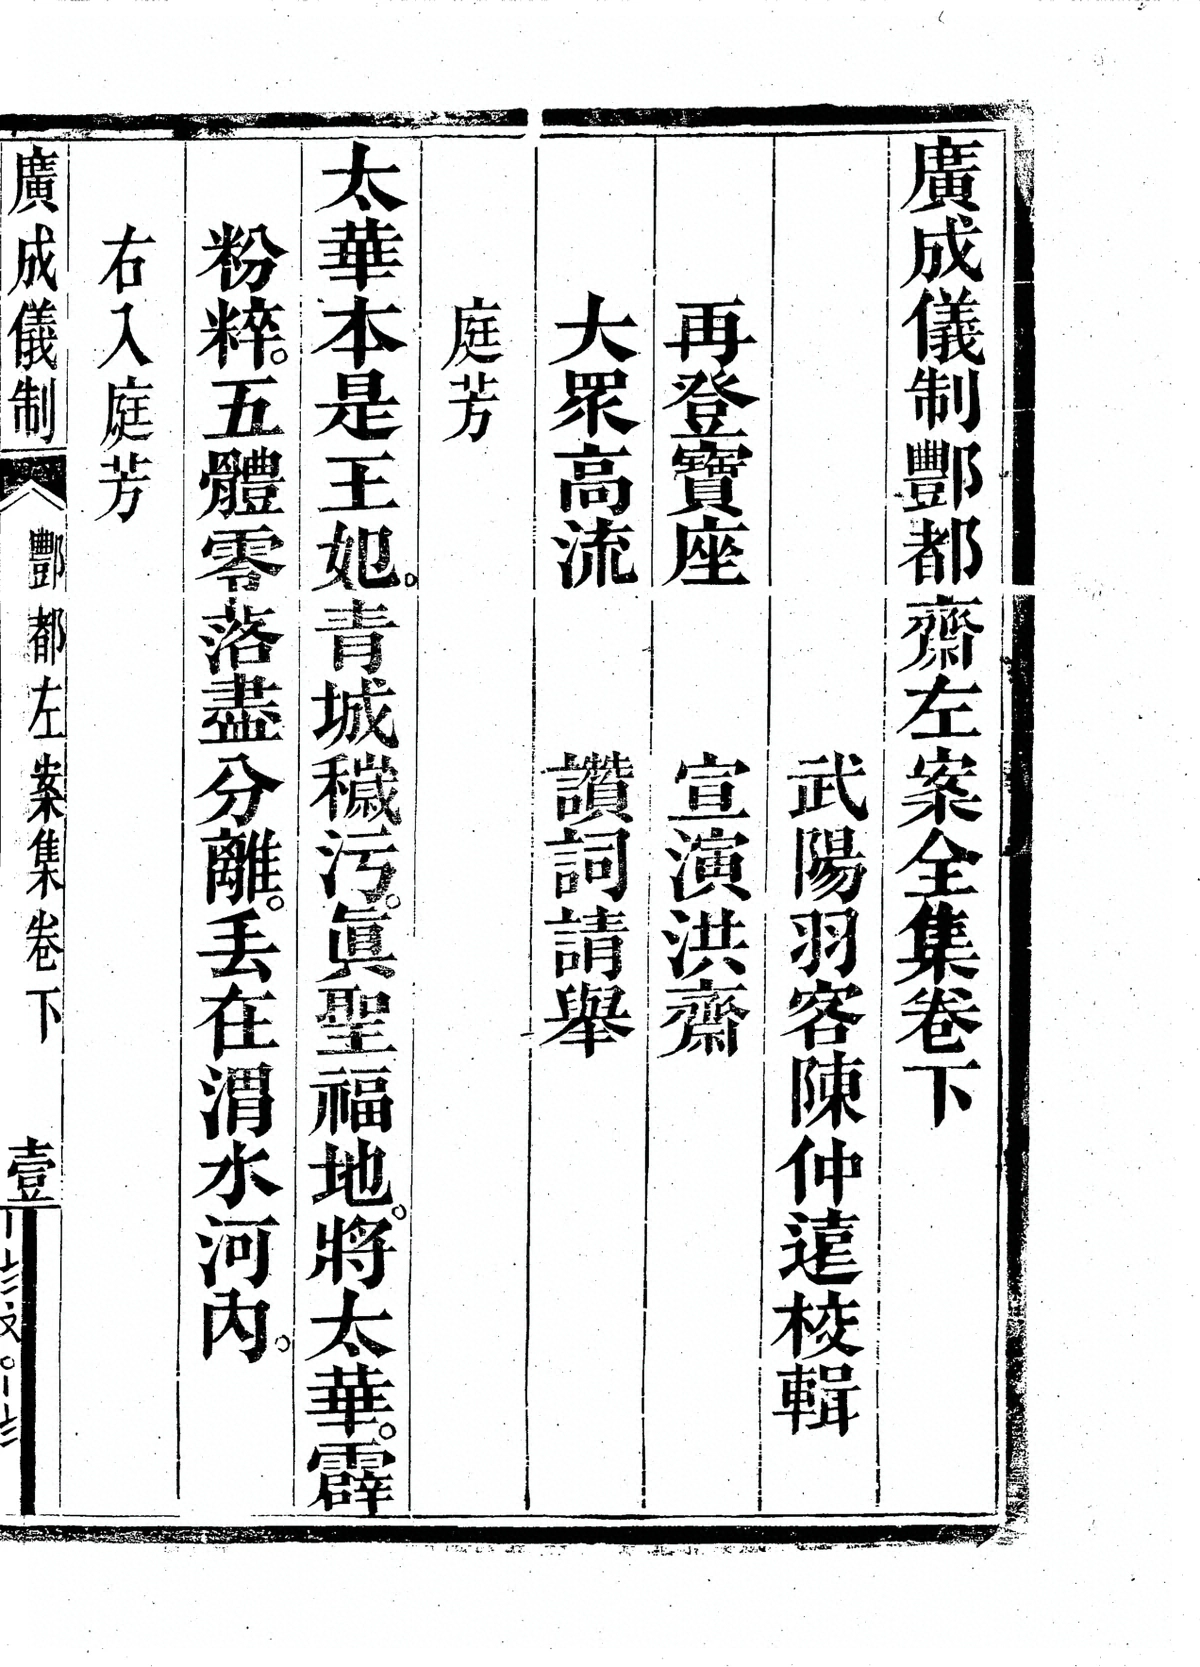 廣成儀制酆都齋左案全集卷下
武陽羽客陳仲遠校輯
再登寶座　宣演洪齋
大眾高流　讚詞請舉
庭芳
太華本是王妃。青城穢污。眞聖福地。將太華。霹
粉粹。五體零落盡分離。丢在渭水河內。
右入庭芳
廣成儀制　酆都左案集卷下　壹